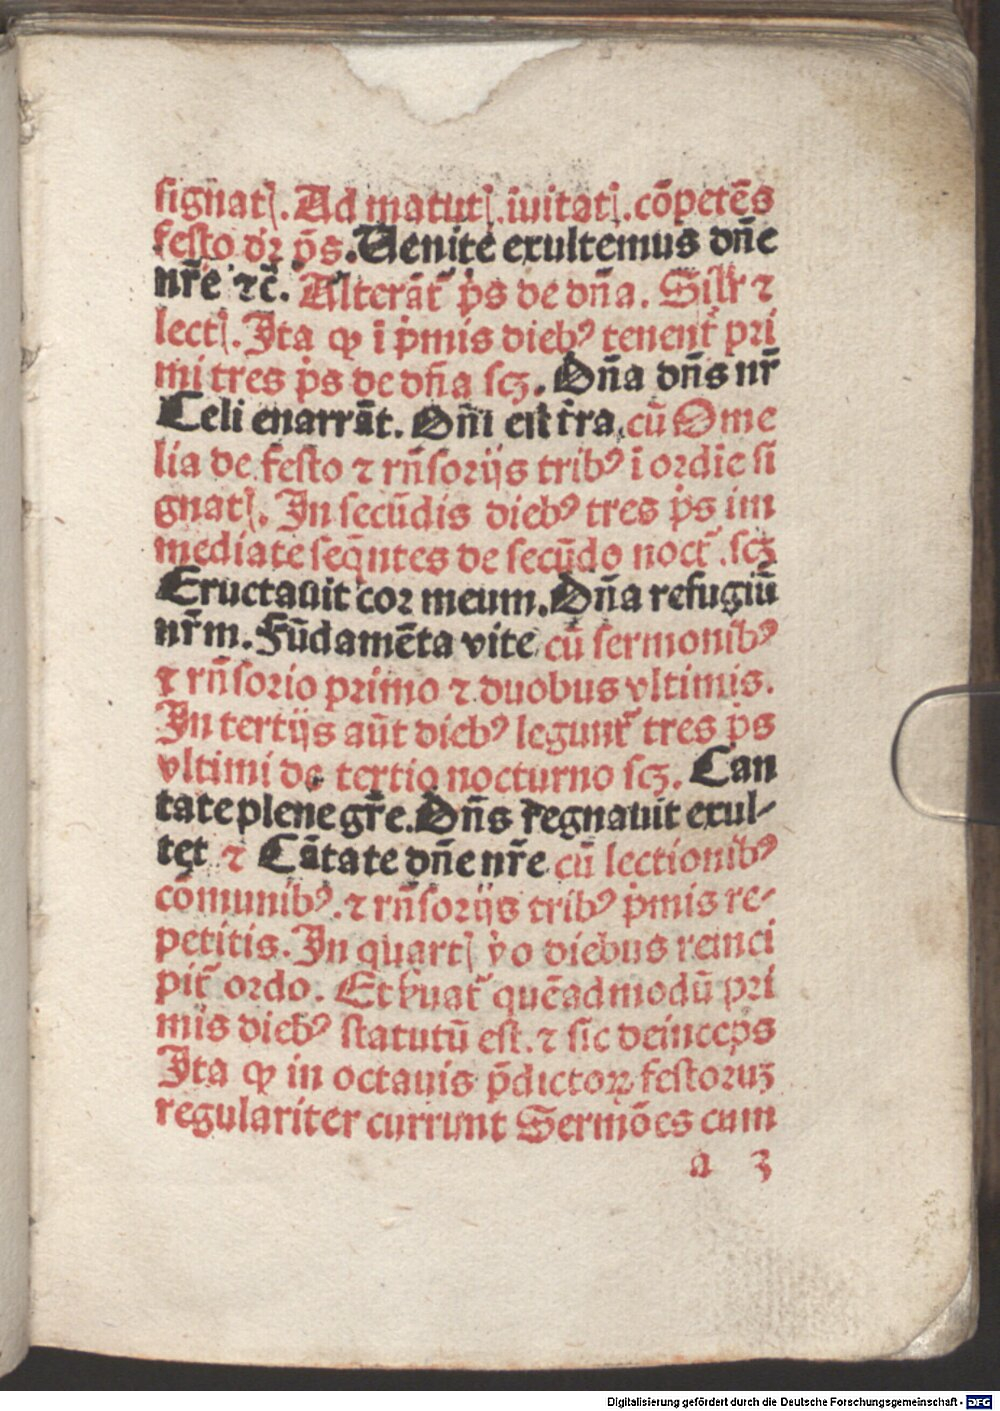 signatꝭ. Ad matutꝭ. iuitatꝭ. cōpetēs
festo dr̄ p̄s. Uenite exultemus dn̄e
nr̄e ⁊c̄. Alterāt᷑ p̄s de dn̄a. Silr̄ ⁊
lectꝭ. Ita ꝙ ī p̍mis dieb⁹ tenent᷑ pri
mi tres p̄s de dn̄a scꝫ. Dn̄a dn̄s nr̄
Celi enarrāt. Dn̄i est t̄ra. cū Ome
lia de festo ⁊ rn̄soriјs trib⁹ ī ordīe si
gnatꝭ. In secūdis dieb⁹ tres p̄s im
mediate seq̄ntes de secūdo noct᷑. scꝫ
Eructauit cor meum. Dn̄a refugiū
nr̄m. Fūdamēta vite cū sermonib⁹
⁊ rn̄sorio primo ⁊ duobus vltimis.
In tertijs aūt dieb⁹ legunt᷑ tres p̄s
vltimi de tertio nocturno scꝫ. Can
tate plene gr̄e. Dn̄s regnauit exul-
tet ⁊ Cātate dn̄e nr̄e cū lectionib⁹
cōmunib⁹. ⁊ rn̄sorijs trib⁹ p̍mis re-
petitis. In quartꝭ v̍o diebus reinci
pit᷑ ordo. Et ẜuat᷑ quēadmodū pri
mis dieb⁹ statutū est. ⁊ sic deinceps
Ita ꝙ in octauis p̄dictoꝝ festoruꝫ
regulariter currunt Sermōes cum
a 3
Digitalisierung gefördert durch die Deutsche Forschungsgemeinschaft - DFG